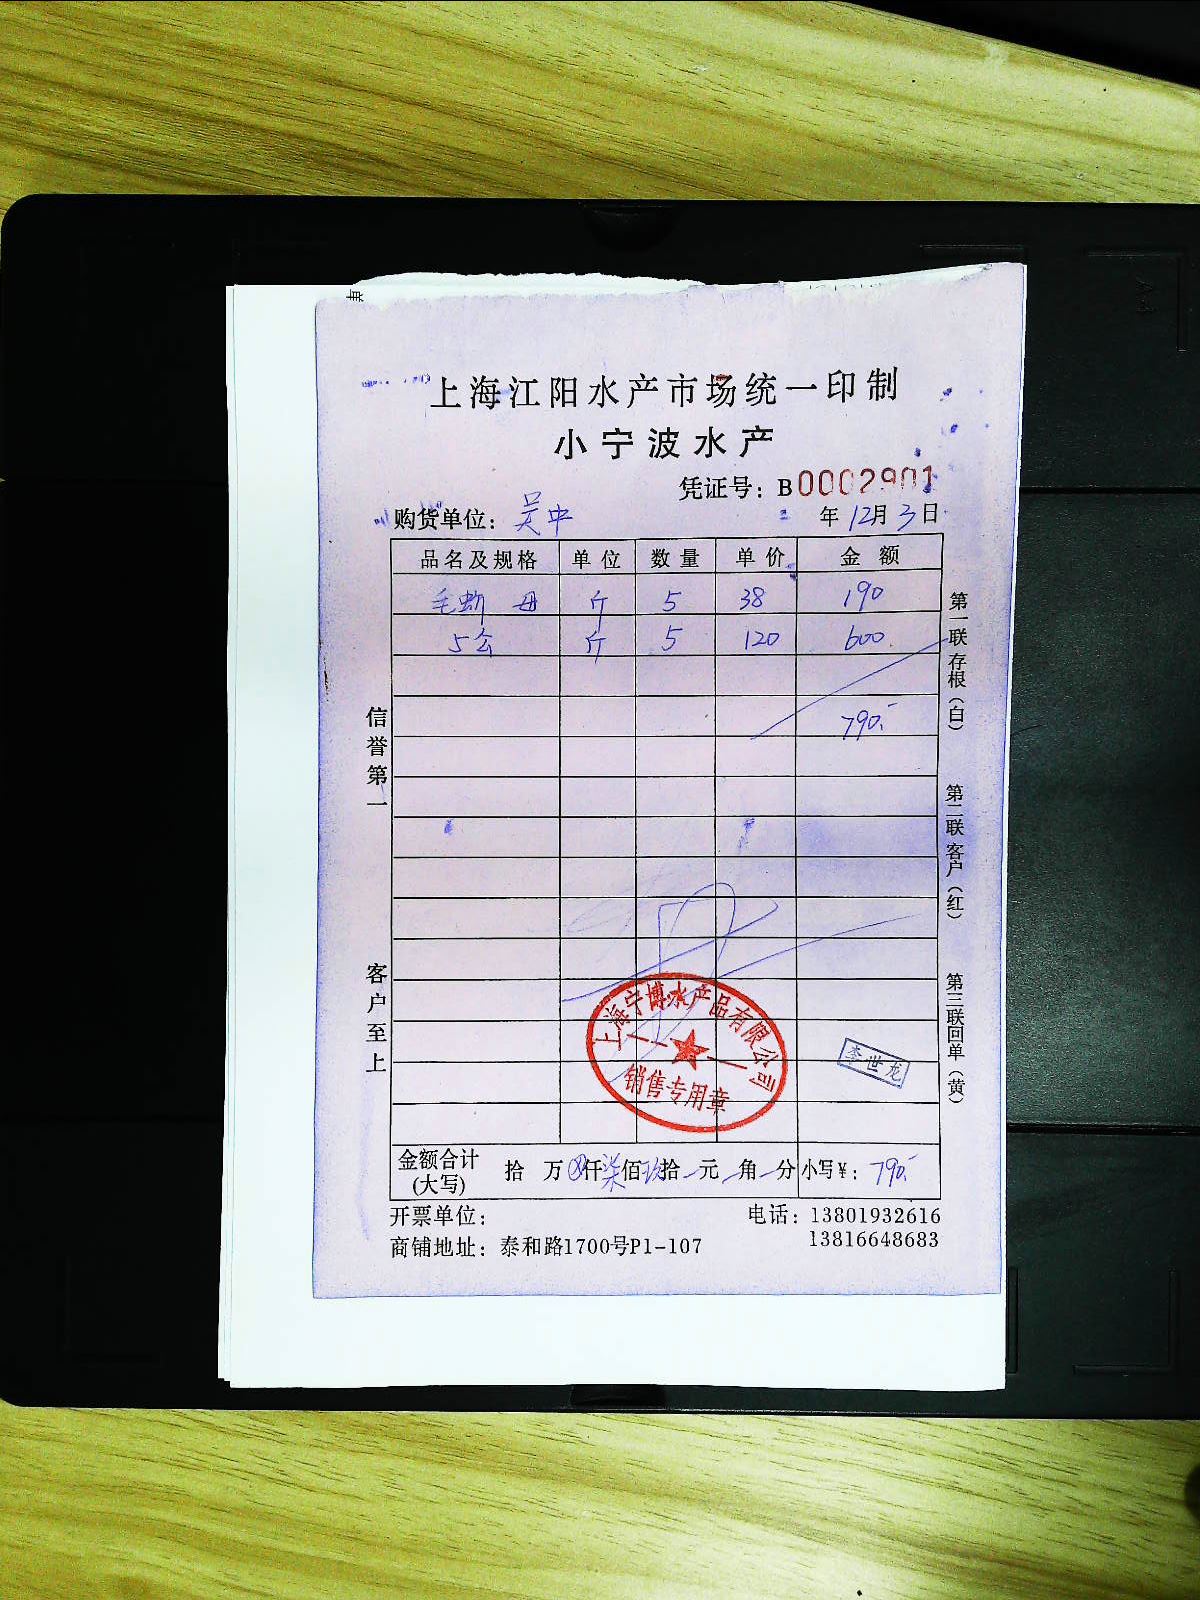 上海江阳水产市场统一印制
小宁波水产
凭证号：B0002901
购货单位：吴中 年12月3日
品名及规格 单位 数量 单价 金额
毛蚶 母 斤 5 38 190
5公 斤 5 120 600
790.-
信誉第一
客户至上
第一联存根（白）
第二联客户（红）
第三联回单（黄）
上海宁博水产品有限公司
销售专用章
李世龙
金额合计(大写) 拾 万 仟柒佰玖拾 元 角 分 小写￥：790.-
开票单位： 电话：13801932616
商铺地址：泰和路1700号P1-107 13816648683